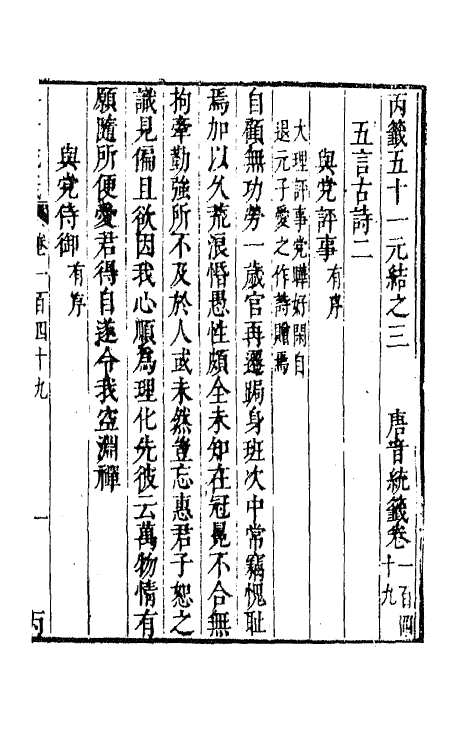 丙籤五十一元結之三　　唐音統籤卷一百四十九
五言古詩二
與党評事有序
大理評事党曄好閑自
退元子愛之作詩贈焉
自顧無功勞一歲官再遷跼身班次中常竊愧恥
焉加以久荒浪惛愚性頗全未知在冠冕不合無
拘牽勤強所不及於人或未然豈忘惠君子恕之
識見偏且欲因我心順為理化先彼云萬物情有
願隨所便愛君得自遂令我空淵禪
與党侍御有序
卷一百四十九　一　丙